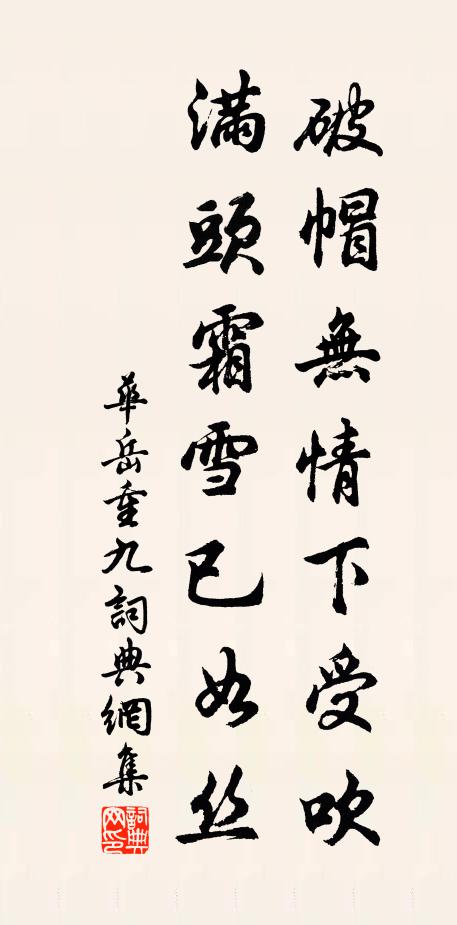 破帽無情下受吹
滿頭霜雪已如丝
華岳重九詞典網集
詞典网印